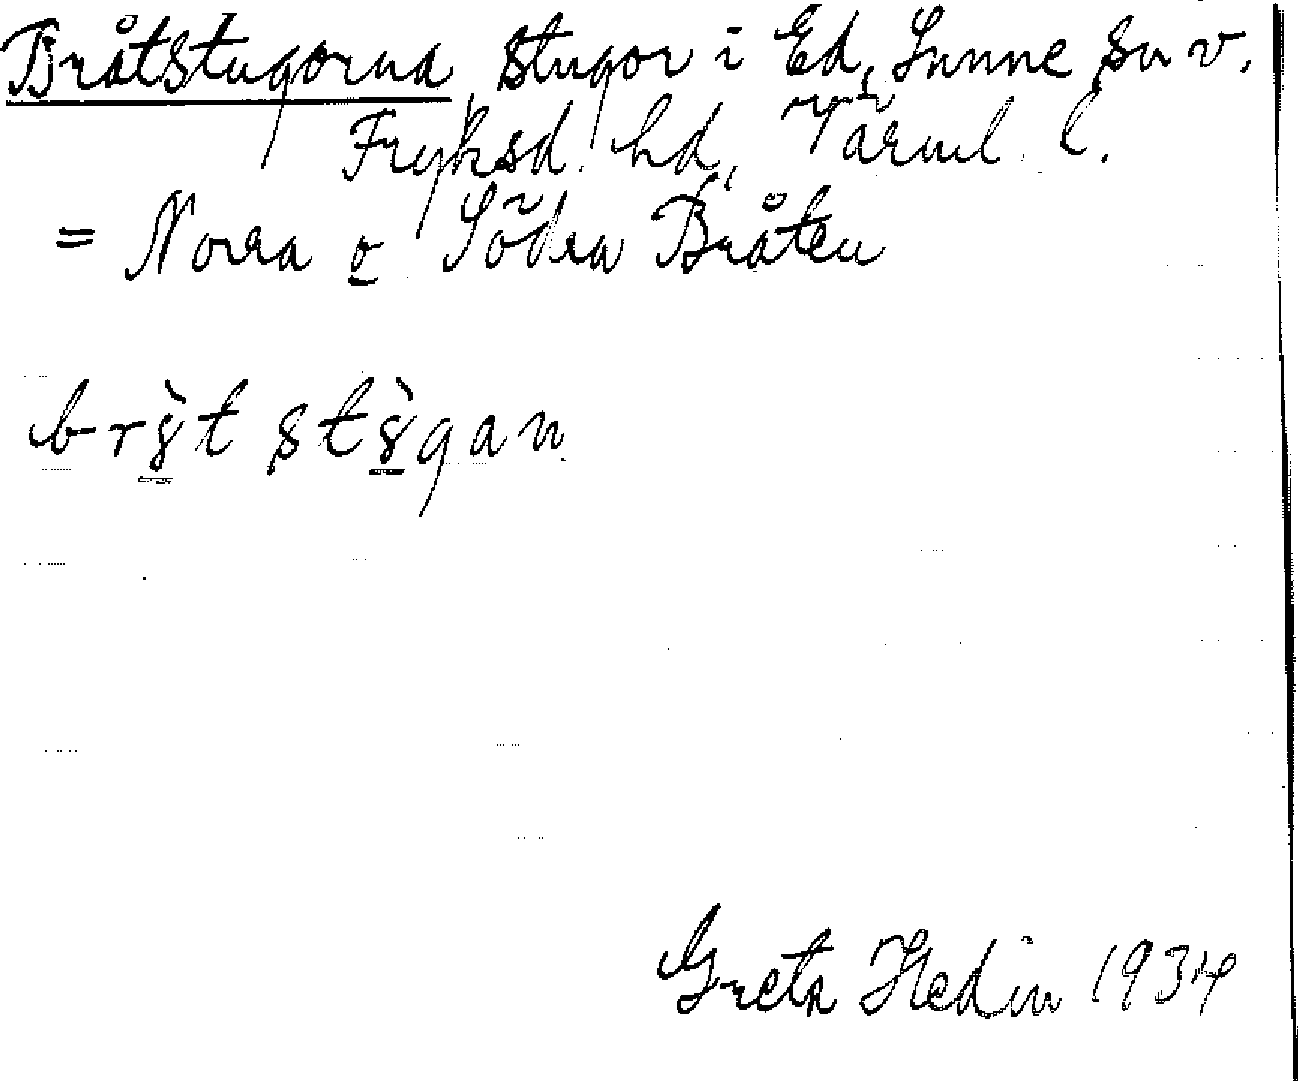 Bråtstugorna, stugor i Ed, Sunne sn v.
Fryksd. hd, Värml. l.
= Norra o Södra Bråten
Greta Hedin 1934